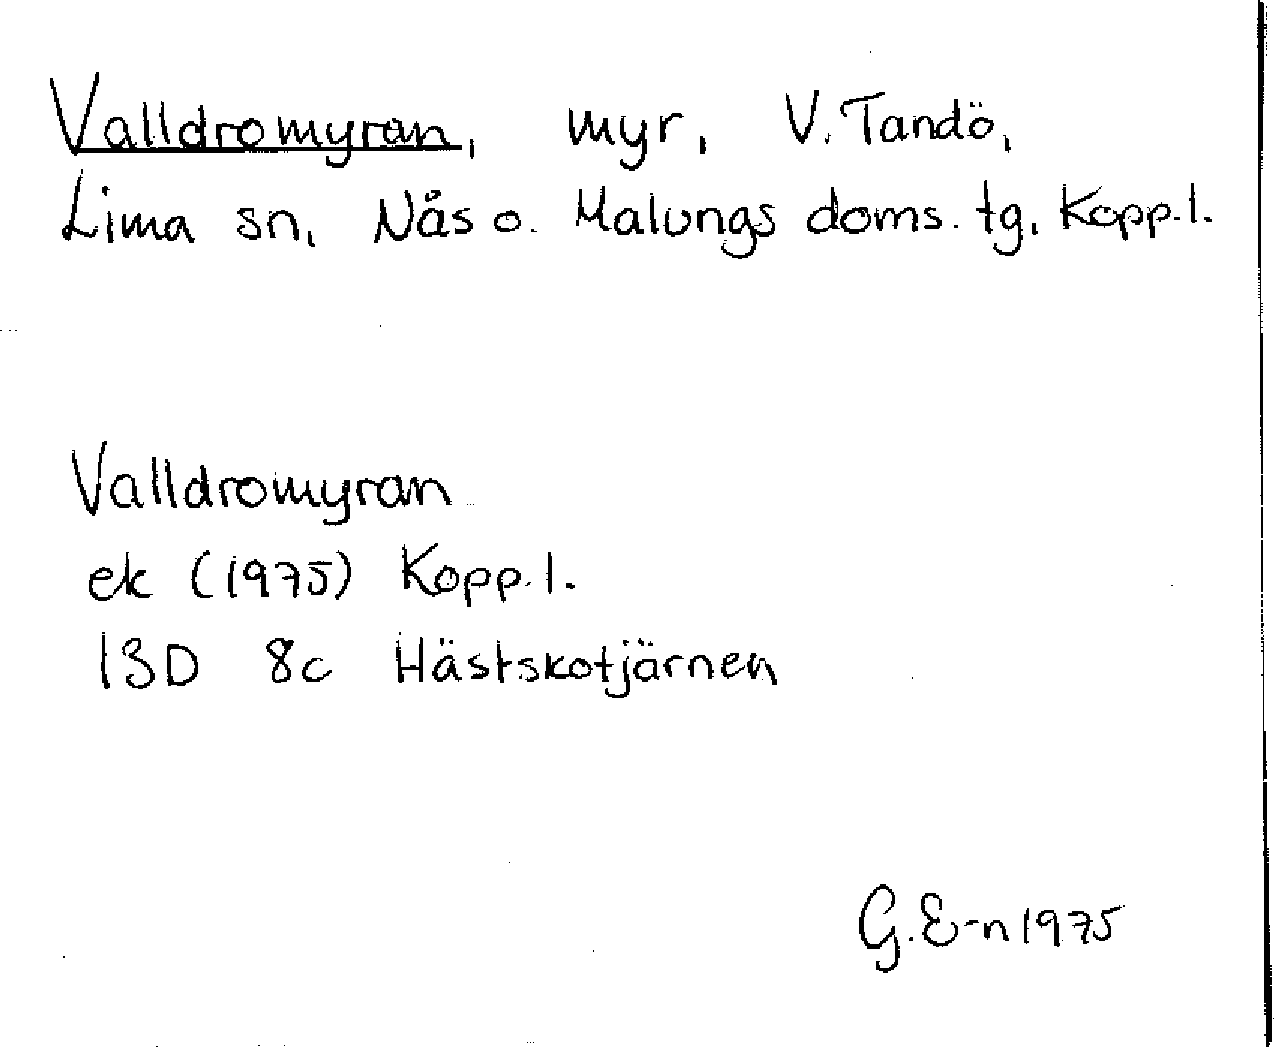 Valldromyran, myr, V. Tandö,
Lima sn, Nås o. Malungs doms. tg, Kopp. l.
Valldromyran
ek (1975) Kopp. l.
13D 8c Hästskotjärnen
G. E-n 1975